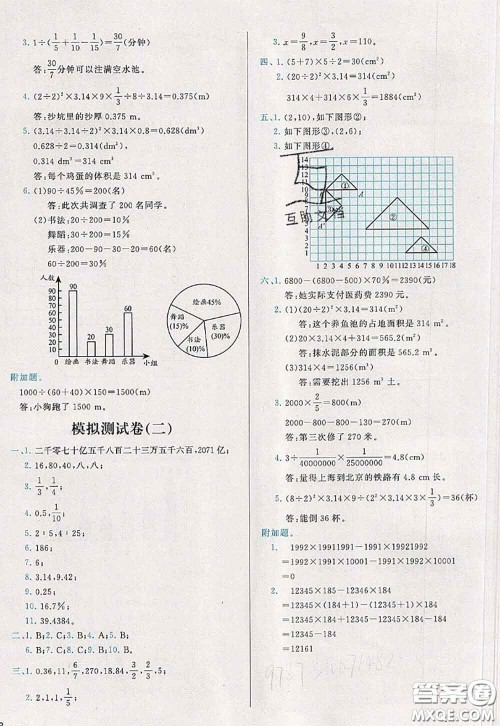 3. 1÷(1/5+1/10-1/15)=30/7(分钟)
答:30/7分钟可以注满空水池。
4. (2÷2)²×3.14×9×1/3÷8÷3.14=0.375(m)
答:沙坑里的沙厚 0.375 m。
5. (3.14÷3.14÷2)²×3.14×0.8=0.628(dm³)
0.628÷2=0.314(dm³)
0.314 dm³=314 cm³
答:每个鸡蛋的体积是 314 cm³。
6. (1)90÷45%=200(名)
答:此次共调查了 200 名同学。
(2)书法:20÷200=10%
舞蹈:30÷200=15%
乐器:200-90-30-20=60(名)
60÷200=30%
人数
100
80
60
40
20
0
90
20
30
60
绘画 书法 舞蹈 乐器 小组
绘画45%
舞蹈(15%)
书法(10%)
乐器(30%)
附加题。
1000÷(60+40)×150=1500(m)
答:小狗跑了 1500 m。
模拟测试卷(二)
一、1. 二千零七十亿五千八百二十三万五千六百,2071亿;
2. 16,80,40,八,八;
3. 1/3,1/4;
4. 0.5,1/10;
5. 2:5,4:25;
6. 186;
7. 3;
8. 3.14,9.42;
9. 0.3;
10. 16.7%;
11. 39.4384。
二、1. B; 2. C; 3. B; 4. B; 5. A;
6. B; 7. B; 8. B; 9. B。
三、1. 0.36,11,6/7,270,18.84,3/2,2/3,5;
2. 2,1,1,1/5;
3. x=9/8,x=3/10,x=110。
四、1. (5+7)×5÷2=30(cm²)
2. (20÷2)²×3.14=314(cm²)
314×4+314×6×1/3=1884(cm³)
五、1. (2,10),如下图形②;
2. 如下图形③,(2,6);
3. 如下图形④;
14
13
12
11
10
9
8
7
6
5
4
3
2
1
0 1 2 3 4 5 6 7 8 9 10 11 12 13 14 15 16 17 18
①
②
④
互助文档
六、1. 6800-(6800-500)×70%=2390(元)
答:她实际支付医药费 2390 元。
2. (1)(20÷2)²×3.14=314(m²)
答:这个养鱼池的占地面积是 314 m²。
答:抹水泥部分的面积是 565.2 m²。
(3)314×4=1256(m³)
答:需要挖出 1256 m³ 土。
3. 2000×2/5=800(m)
答:第三次修了 800 m。
4. 3÷1/40000000×1/25000000=4.8(cm)
答:量得上海到北京的铁路有 4.8 cm 长。
5. (8÷2)²×3.14×9÷(2²×3.14×3×1/3)=36(杯)
答:能倒 36 杯。
附加题。
1. 1992×19911991-1991×19921992
=1992×1991×10001-1991×1992×10001
=0
2. 12345×185-12345×184-184
=12345×(184+1)-(12345×184)-184
=12345×184+12345-12345×184-184
=12345-184
=12161
答案圈
MXQE.COM